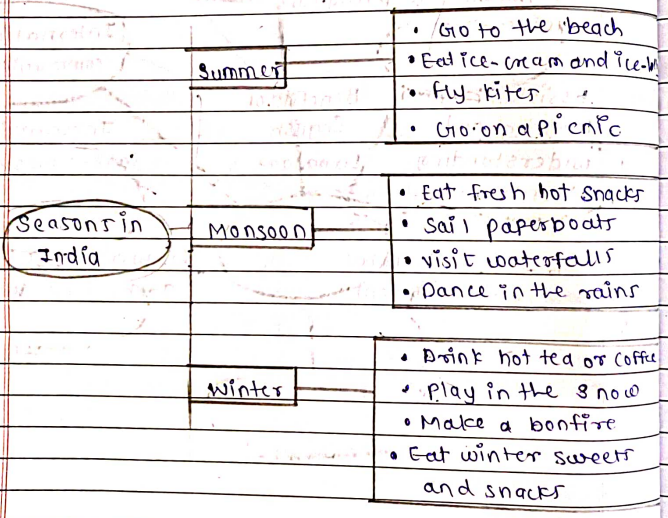 Seasons in
India
Summer
• Go to the beach
• Eat ice-cream and ice-
• fly kites
• Go on a picnic
Monsoon
• Eat fresh hot snacks
• Sail paperboats
• visit waterfalls
• Dance in the rains
Winter
• Drink hot tea or coffee
• Play in the snow
• Make a bonfire
• Eat winter sweets
and snacks